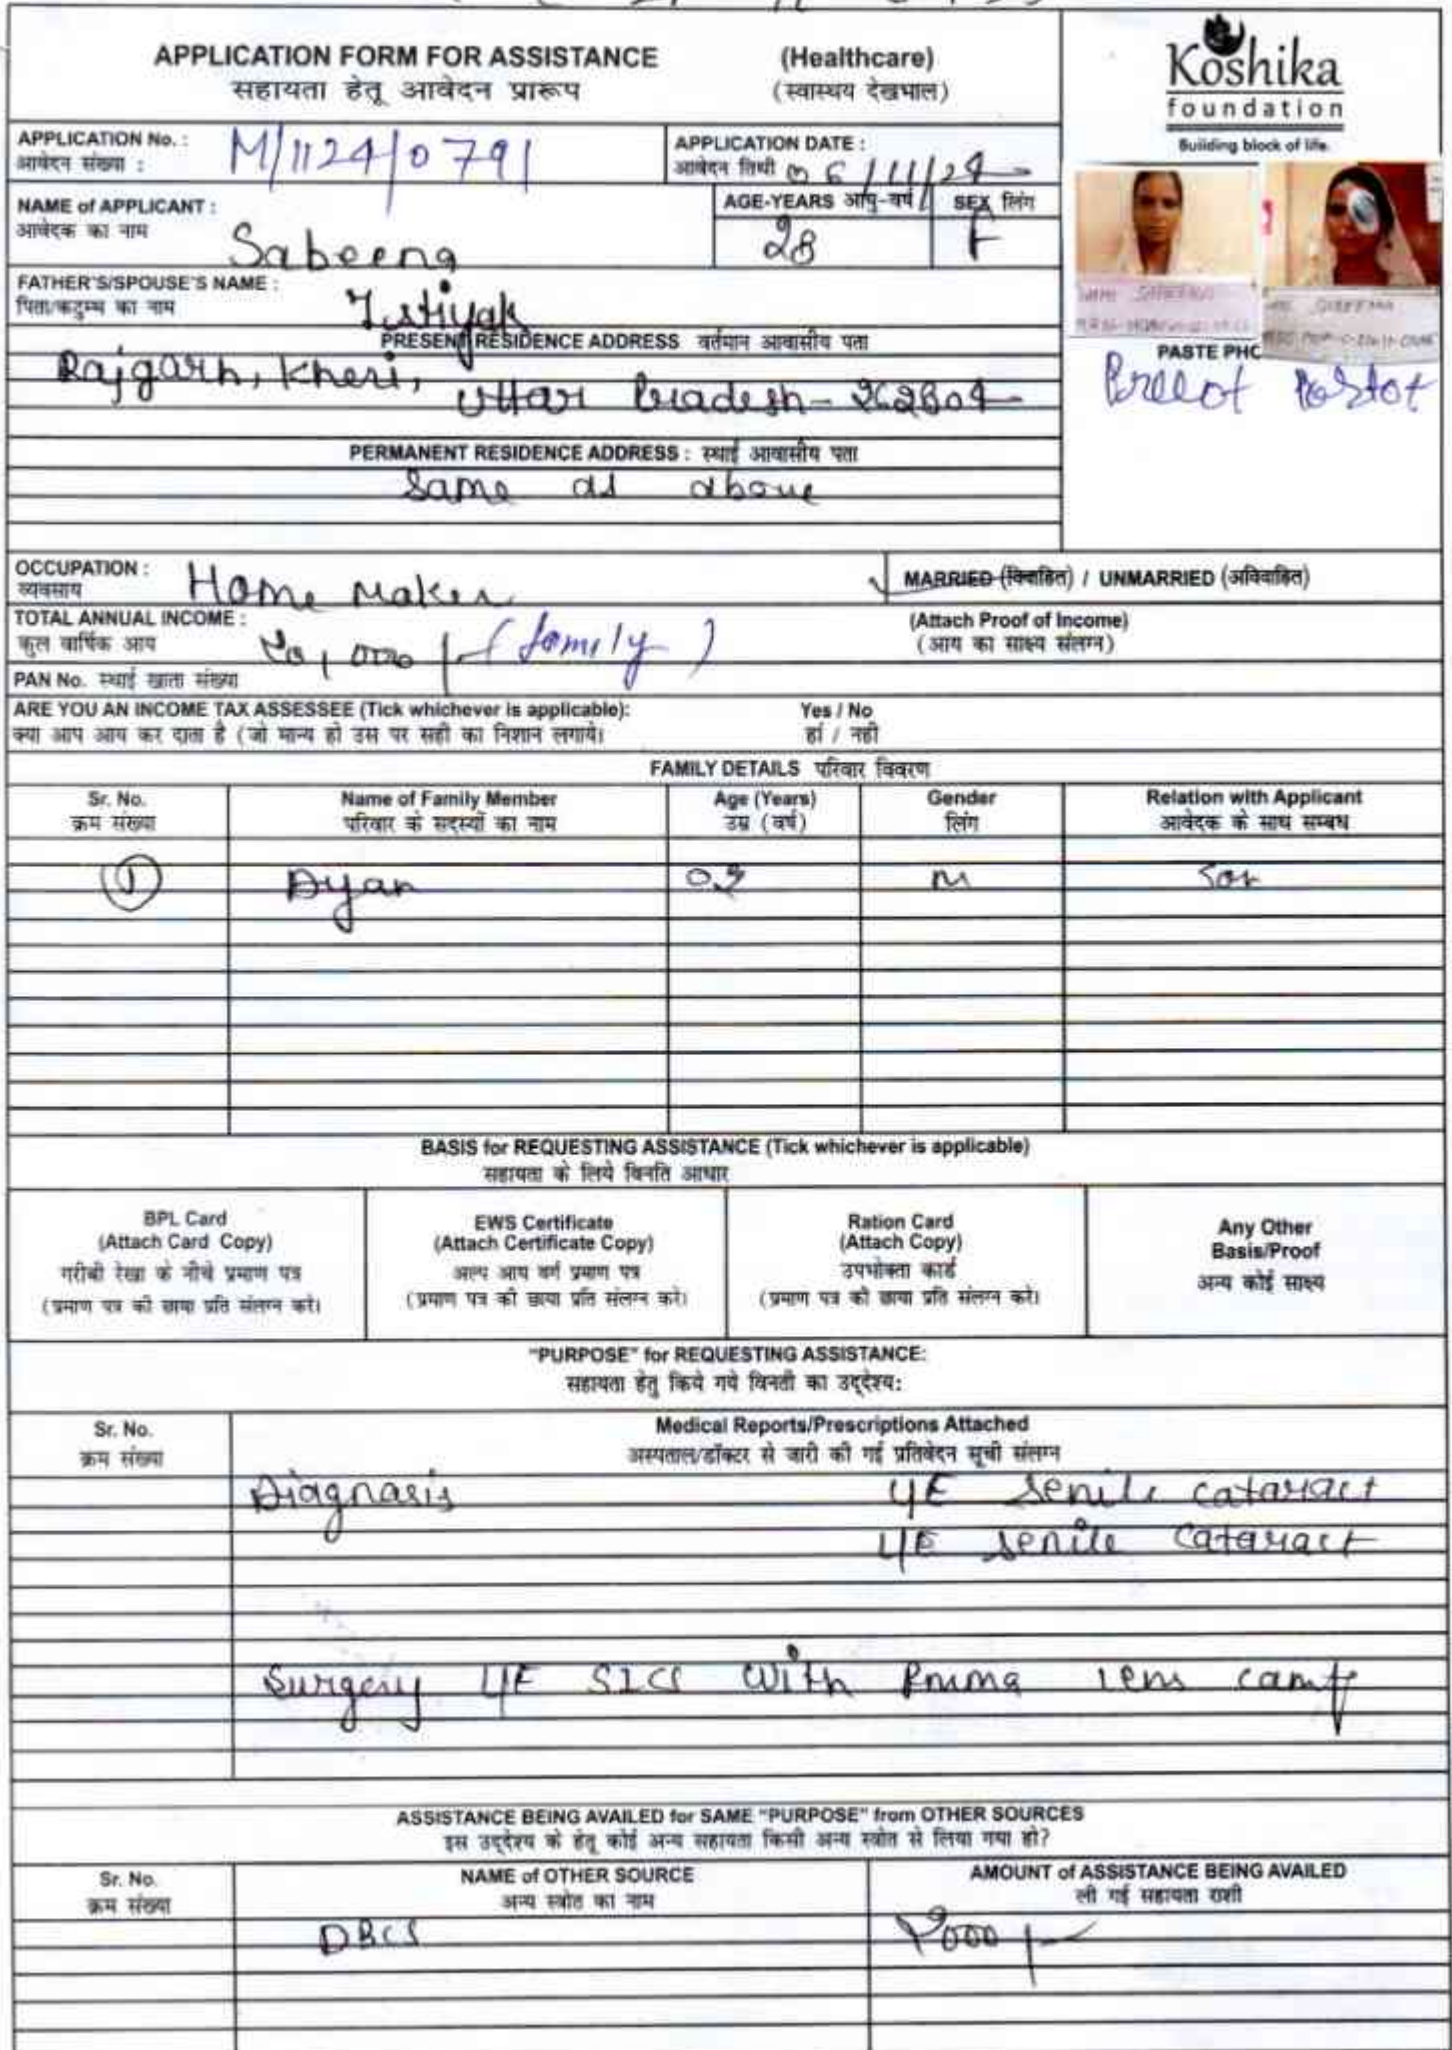 APPLICATION FORM FOR ASSISTANCE (Healthcare)
सहायता हेतू आवेदन प्रारूप (स्वास्थय देखभाल)
Koshika
foundation
Building block of life.
APPLICATION No. : M/1124/0791
आवेदन संख्या :
APPLICATION DATE : 06/11/24
आवेदन तिथी
NAME of APPLICANT : Sabeena
आवेदक का नाम
AGE-YEARS आयु-वर्ष 28
SEX लिंग F
FATHER'S/SPOUSE'S NAME : Istiyak
पिता/कटुम्ब का नाम
PRESENT RESIDENCE ADDRESS वर्तमान आवासीय पता
Rajgarh, Kheri,
Uttar Pradesh - 262804
PASTE PHO
Preeot Postot
PERMANENT RESIDENCE ADDRESS : स्थाई आवासीय पता
Same as above
OCCUPATION : Home Maker
व्यवसाय
MARRIED (विवाहित) / UNMARRIED (अविवाहित)
TOTAL ANNUAL INCOME : (family)
कुल वार्षिक आय
(Attach Proof of Income)
(आय का साक्ष्य संलग्न)
PAN No. स्थाई खाता संख्या
ARE YOU AN INCOME TAX ASSESSEE (Tick whichever is applicable): Yes / No
क्या आप आय कर दाता है (जो मान्य हो उस पर सही का निशान लगाये। हां / नही
FAMILY DETAILS परिवार विवरण
Sr. No. Name of Family Member Age (Years) Gender Relation with Applicant
क्रम संख्या परिवार के सदस्यों का नाम उम्र (वर्ष) लिंग आवेदक के साथ सम्बध
1 Ayan M Son
BASIS for REQUESTING ASSISTANCE (Tick whichever is applicable)
सहायता के लिये विनति आधार
BPL Card
(Attach Card Copy)
गरीबी रेखा के नीचे प्रमाण पत्र
(प्रमाण पत्र की छाया प्रति संलग्न करे।
EWS Certificate
(Attach Certificate Copy)
अल्प आय वर्ग प्रमाण पत्र
(प्रमाण पत्र की छाया प्रति संलग्न करे।
Ration Card
(Attach Copy)
उपभोक्ता कार्ड
(प्रमाण पत्र की छाया प्रति संलग्न करे।
Any Other
Basis/Proof
अन्य कोई साक्ष्य
"PURPOSE" for REQUESTING ASSISTANCE:
सहायता हेतु किये गये विनती का उद्देश्य:
Sr. No. Medical Reports/Prescriptions Attached
क्रम संख्या अस्पताल/डॉक्टर से जारी की गई प्रतिवेदन सूची संलग्न
Diagnosis Senile cataract
Senile cataract
Surgery SICS with Pmma lens camp
ASSISTANCE BEING AVAILED for SAME "PURPOSE" from OTHER SOURCES
इस उद्देश्य के हेतू कोई अन्य सहायता किसी अन्य स्त्रोत से लिया गया हो?
Sr. No. NAME of OTHER SOURCE AMOUNT of ASSISTANCE BEING AVAILED
क्रम संख्या अन्य स्त्रोत का नाम ली गई सहायता राशी
DBCS 2000/-